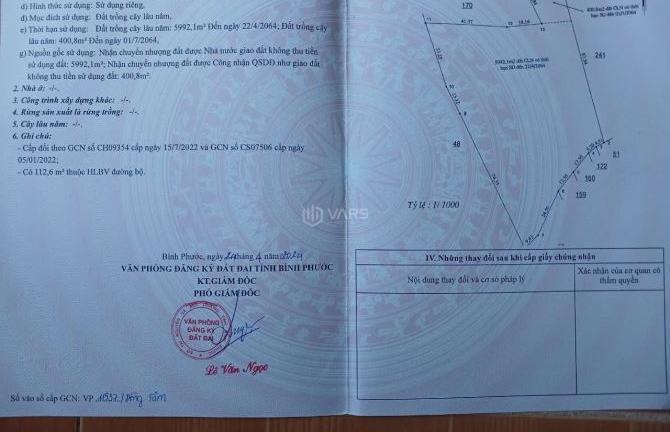 d) Hình thức sử dụng: Sử dụng riêng,
đ) Mục đích sử dụng: Đất trồng cây lâu năm,
e) Thời hạn sử dụng: Đất trồng cây lâu năm: 5992,1m² Đến ngày 22/4/2064; Đất trồng cây
lâu năm: 400,8m² Đến ngày 01/7/2064,
g) Nguồn gốc sử dụng: Nhận chuyển nhượng đất được Nhà nước giao đất không thu tiền
sử dụng đất: 5992,1m²; Nhận chuyển nhượng đất được Công nhận QSDĐ như giao đất
không thu tiền sử dụng đất: 400,8m².
2. Nhà ở: -/-.
3. Công trình xây dựng khác: -/-.
4. Rừng sản xuất là rừng trồng: -/-.
5. Cây lâu năm: -/-.
6. Ghi chú:
- Cấp đổi theo GCN số CH09354 cấp ngày 15/7/2022 và GCN số CS07506 cấp ngày
05/01/2022;
- Có 112,6 m² thuộc HLBV đường bộ.
Bình Phước, ngày 24 tháng 4 năm 2024
VĂN PHÒNG ĐĂNG KÝ ĐẤT ĐAI TỈNH BÌNH PHƯỚC
KT.GIÁM ĐỐC
PHÓ GIÁM ĐỐC
VĂN PHÒNG
ĐĂNG KÝ
ĐẤT ĐAI
Lê Văn Ngọc
Số vào sổ cấp GCN: VP
Đồng Tâm
VARS
170
241
48
81
122
160
159
Tỷ lệ : 1/ 1000
IV. Những thay đổi sau khi cấp giấy chứng nhận
Nội dung thay đổi và cơ sở pháp lý
Xác nhận của cơ quan có
thẩm quyền